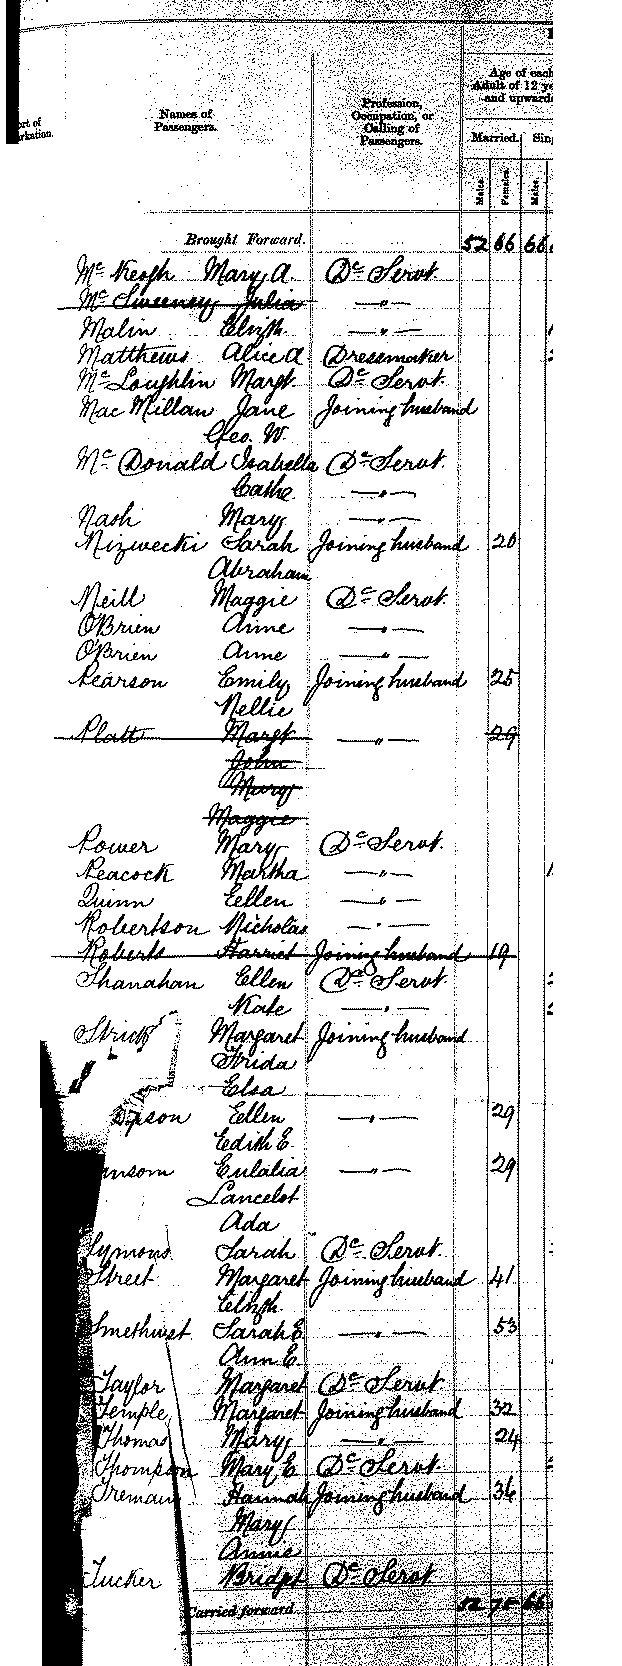 Age of each
Adult of 12 ye
and upward
ort of
rkation.
Names of
Passengers.
Profession,
Occupation, or
Calling of
Passengers.
Married. Sin
Males. Females. Males.
Brought Forward. 52 66 66
Mc Keogh Mary A. Dc Servt.
Mc Sweeney Julia —"—
Malin Elizth. —"—
Matthews Alice A Dressmaker
Mc Loughlin Margt. Dc Servt.
Mac Millan Jane Joining husband
Geo. W.
Mc Donald Isabella Dc Servt.
Cathe —"—
Nash Mary —"—
Mizwecki Sarah Joining husband 20
Abraham
Neill Maggie Dc Servt.
O'Brien Anne —"—
O'Brien Anne —"—
Pearson Emily Joining husband 25
Nellie
Platt Margt —"— 29
John
Mary
Maggie
Power Mary Dc Servt.
Peacock Martha —"—
Quinn Ellen —"—
Robertson Nicholas —"—
Roberts Harriet Joining husband 19
Shanahan Ellen Dc Servt.
Kate —"—
Strick Margaret Joining husband
Frida
Elsa
pson Ellen —"— 29
Edith E.
ansom Eulalia —"— 29
Lancelot
Ada
Symons Sarah Dc Servt.
Street Margaret Joining husband 41
Elizth.
Smethurst Sarah E —"— 53
Ann E.
Taylor Margaret Dc Servt
Temple Margaret Joining husband 32
Thomas Mary —"— 24
Thompson Mary E Dc Servt.
Tremain Hannah Joining husband 36
Mary
Annie
Tucker Bridgt Dc Servt
Carried forward 52 75 66